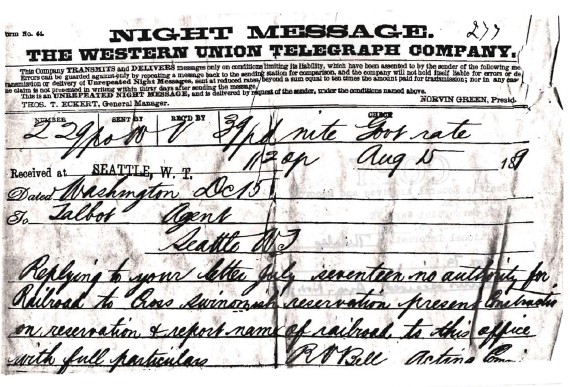 Form No. 44.
NIGHT MESSAGE.
277
THE WESTERN UNION TELEGRAPH COMPANY.
This Company TRANSMITS and DELIVERS messages only on conditions limiting its liability, which have been assented to by the sender of the following me
Errors can be guarded against only by repeating a message back to the sending station for comparison, and the company will not hold itself liable for errors or de
ransmission or delivery of Unrepeated Night Messages, sent at reduced rates, beyond a sum equal to ten times the amount paid for transmission; nor in any case
e claim is not presented in writing within thirty days after sending the message.
This is an UNREPEATED NIGHT MESSAGE, and is delivered by request of the sender, under the conditions named above.
THOS. T. ECKERT, General Manager.
NORVIN GREEN, Presid
NUMBER SENT BY REC'D BY CHECK
229 po W V 39 pd nite Govt rate
Received at SEATTLE, W. T. 1120p Aug 15 189
Dated Washington Dc 15
To Talbot Agent
Seattle WT
Replying to your letter July seventeen no authority for
Railroad to Cross Swinomish reservation present Construction
on reservation & report name of railroad to this office
with full particulars R V Bell Acting